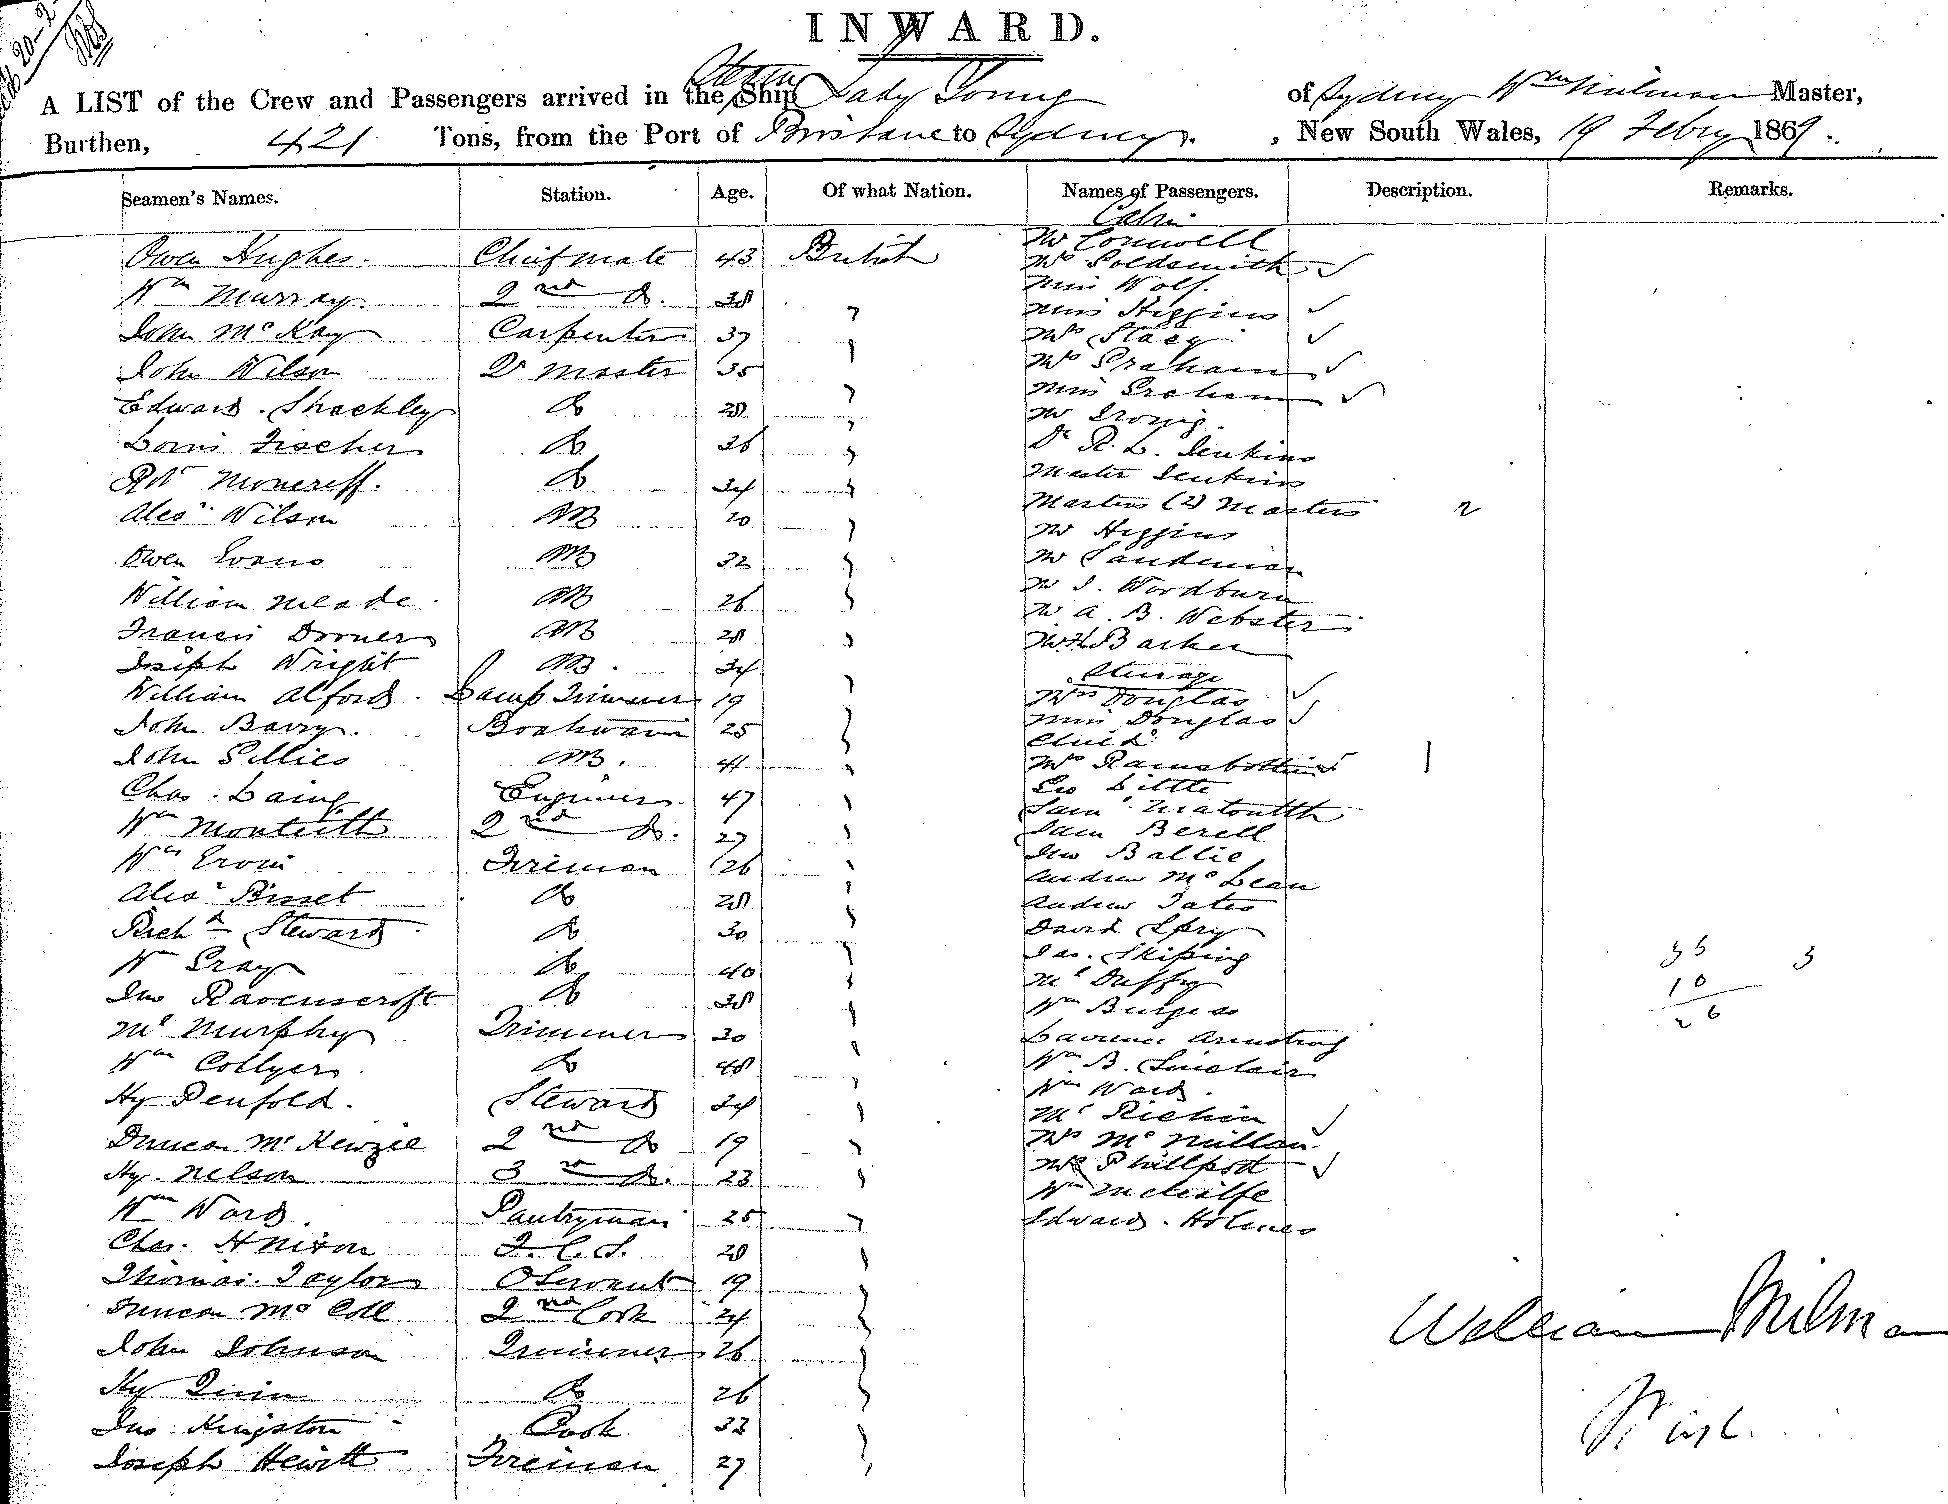 INWARD.
A LIST of the Crew and Passengers arrived in the Ship Lady Young of Sydney Wm Milman Master,
Burthen, 421 Tons, from the Port of Brisbane to Sydney, New South Wales, 19 Febry 1869.
Seamen's Names. Station. Age. Of what Nation. Names of Passengers. Description. Remarks.
Cabin
Owen Hughes. Chief mate 43 British Mr Cornwell
Mrs Goldsmith
Wm Murray. 2nd Do. 38 Miss Wolf.
Miss Higgins
John McKay Carpenter 37 Mrs Stacy
John Wilson Qr master 35 Mrs Graham
Miss Graham
Edward Shackley Do 28 Mr
Louis Fischer Do 36 Dr R. L. Jenkins
Robt Moncreiff. Do 34 Master Jenkins
Martins (2) Masters 2
Alexr Wilson AB 20 Mr Higgins
Owen Evans AB 32 Mr Sandeman
William Meade AB 26 Mr J. Wordburn
Mr A. B. Webster
Francis Dorner AB 28 Mr H Barker
Joseph Wright AB. 34 Steerage
William Alford Lamp Trimmer 19 Mrs Douglas
John Barry. Boatswain 25 Miss Douglas
Child
John Gillies AB. 41 Mrs Ramsbottom 1
Chas. Laing Engineer 47 Geo Little
Wm Monteith 2nd Do. 27 Saml
Sam Berell
Wm Ervin Fireman 26 Jno Ballie
Andrew McLean
Alexr Bisset Do 28 Andrew Tates
Richd Steward Do 30 David Spry
W Gray Do 40 Jas. Skiping
35 3
Ml Duffy
10
Jno Ravenscroft Do 38 Wm Burgess
26
Ml Murphy Trimmer 30 Lawrence Armstrong
Wm Collyer Do 48 Wm B. Sinclair
Wm Ward.
Hy Penfold. Steward 34 Ml
Duncan McKenzie 2nd Do 19 Mrs McMillan
Hy. Nelson 3rd Do. 23 Mrs Phillpot
Wm Ward. Pantryman 25 Wm Metcalfe
Edward Holmes
Chas. H Nixon F. C. S. 28
Thomas Taylor O Servant 19
Duncan McColl 2nd Cook 24
William Milman
John Johnson Trimmer 26
Hy Quin Do 26
Jno Kingston Cook 33
Joseph Hewitt Fireman 27